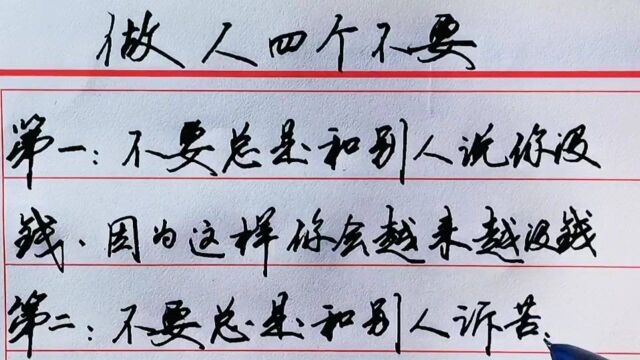 做人四个不要
第一:不要总是和别人说你没
钱、因为这样你会越来越没钱
第二:不要总是和别人诉苦、